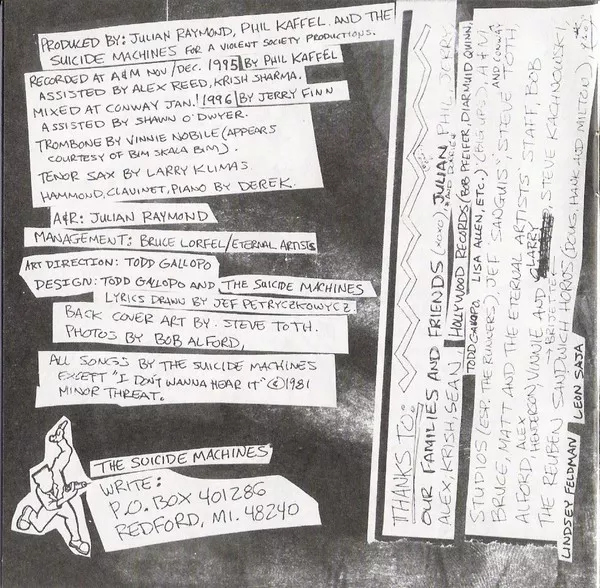 PRODUCED BY: JULIAN RAYMOND, PHIL KAFFEL. AND THE
SUICIDE MACHINES FOR A VIOLENT SOCIETY PRODUCTIONS.
RECORDED AT A&M NOV/DEC. 1995 BY PHIL KAFFEL
ASSISTED BY ALEX REED, KRISH SHARMA.
MIXED AT CONWAY JAN. 1996 BY JERRY FINN
ASSISTED BY SHAWN O'DWYER.
TROMBONE BY VINNIE NOBILE (APPEARS
COURTESY OF BIM SKALA BIM).
TENOR SAX BY LARRY KLIMAS
HAMMOND, CLAVINET, PIANO BY DEREK.
A&R: JULIAN RAYMOND
MANAGEMENT: BRUCE LORFEL/ETERNAL ARTISTS
ART DIRECTION: TODD GALLOPO
DESIGN: TODD GALLOPO AND THE SUICIDE MACHINES
LYRICS DRAWN BY JEF PETRYCZKOWYCZ.
BACK COVER ART BY. STEVE TOTH.
PHOTOS BY BOB ALFORD,
ALL SONGS BY THE SUICIDE MACHINES
EXCEPT "I DON'T WANNA HEAR IT" © 1981
MINOR THREAT.
THE SUICIDE MACHINES
WRITE:
P.O. BOX 401286
REDFORD, MI. 48240
THANKS TO:
OUR FAMILIES AND FRIENDS (XOXO), JULIAN, PHIL, JERRY,
ALEX, KRISH, SEAN, AND DARIEN HOLLYWOOD RECORDS (BOB PFEIFER, DIARMUID QUINN,
TODD GALLOPO, LISA ALLEN, ETC.) (BIG UPS), A&M
STUDIOS (ESP. THE RUNNERS), JEF "SANGUIS" AND CONWAY STEVE TOTH,
BRUCE, MATT AND THE ETERNAL ARTISTS STAFF, BOB
ALFORD, ALEX HENDERSON, VINNIE AND LARRY, STEVE KACHNOWSKI,
THE REUBEN SANDWICH HORNS (DOUG, HANK AND MILTON),
LINDSEY FELDMAN LEON SAJA